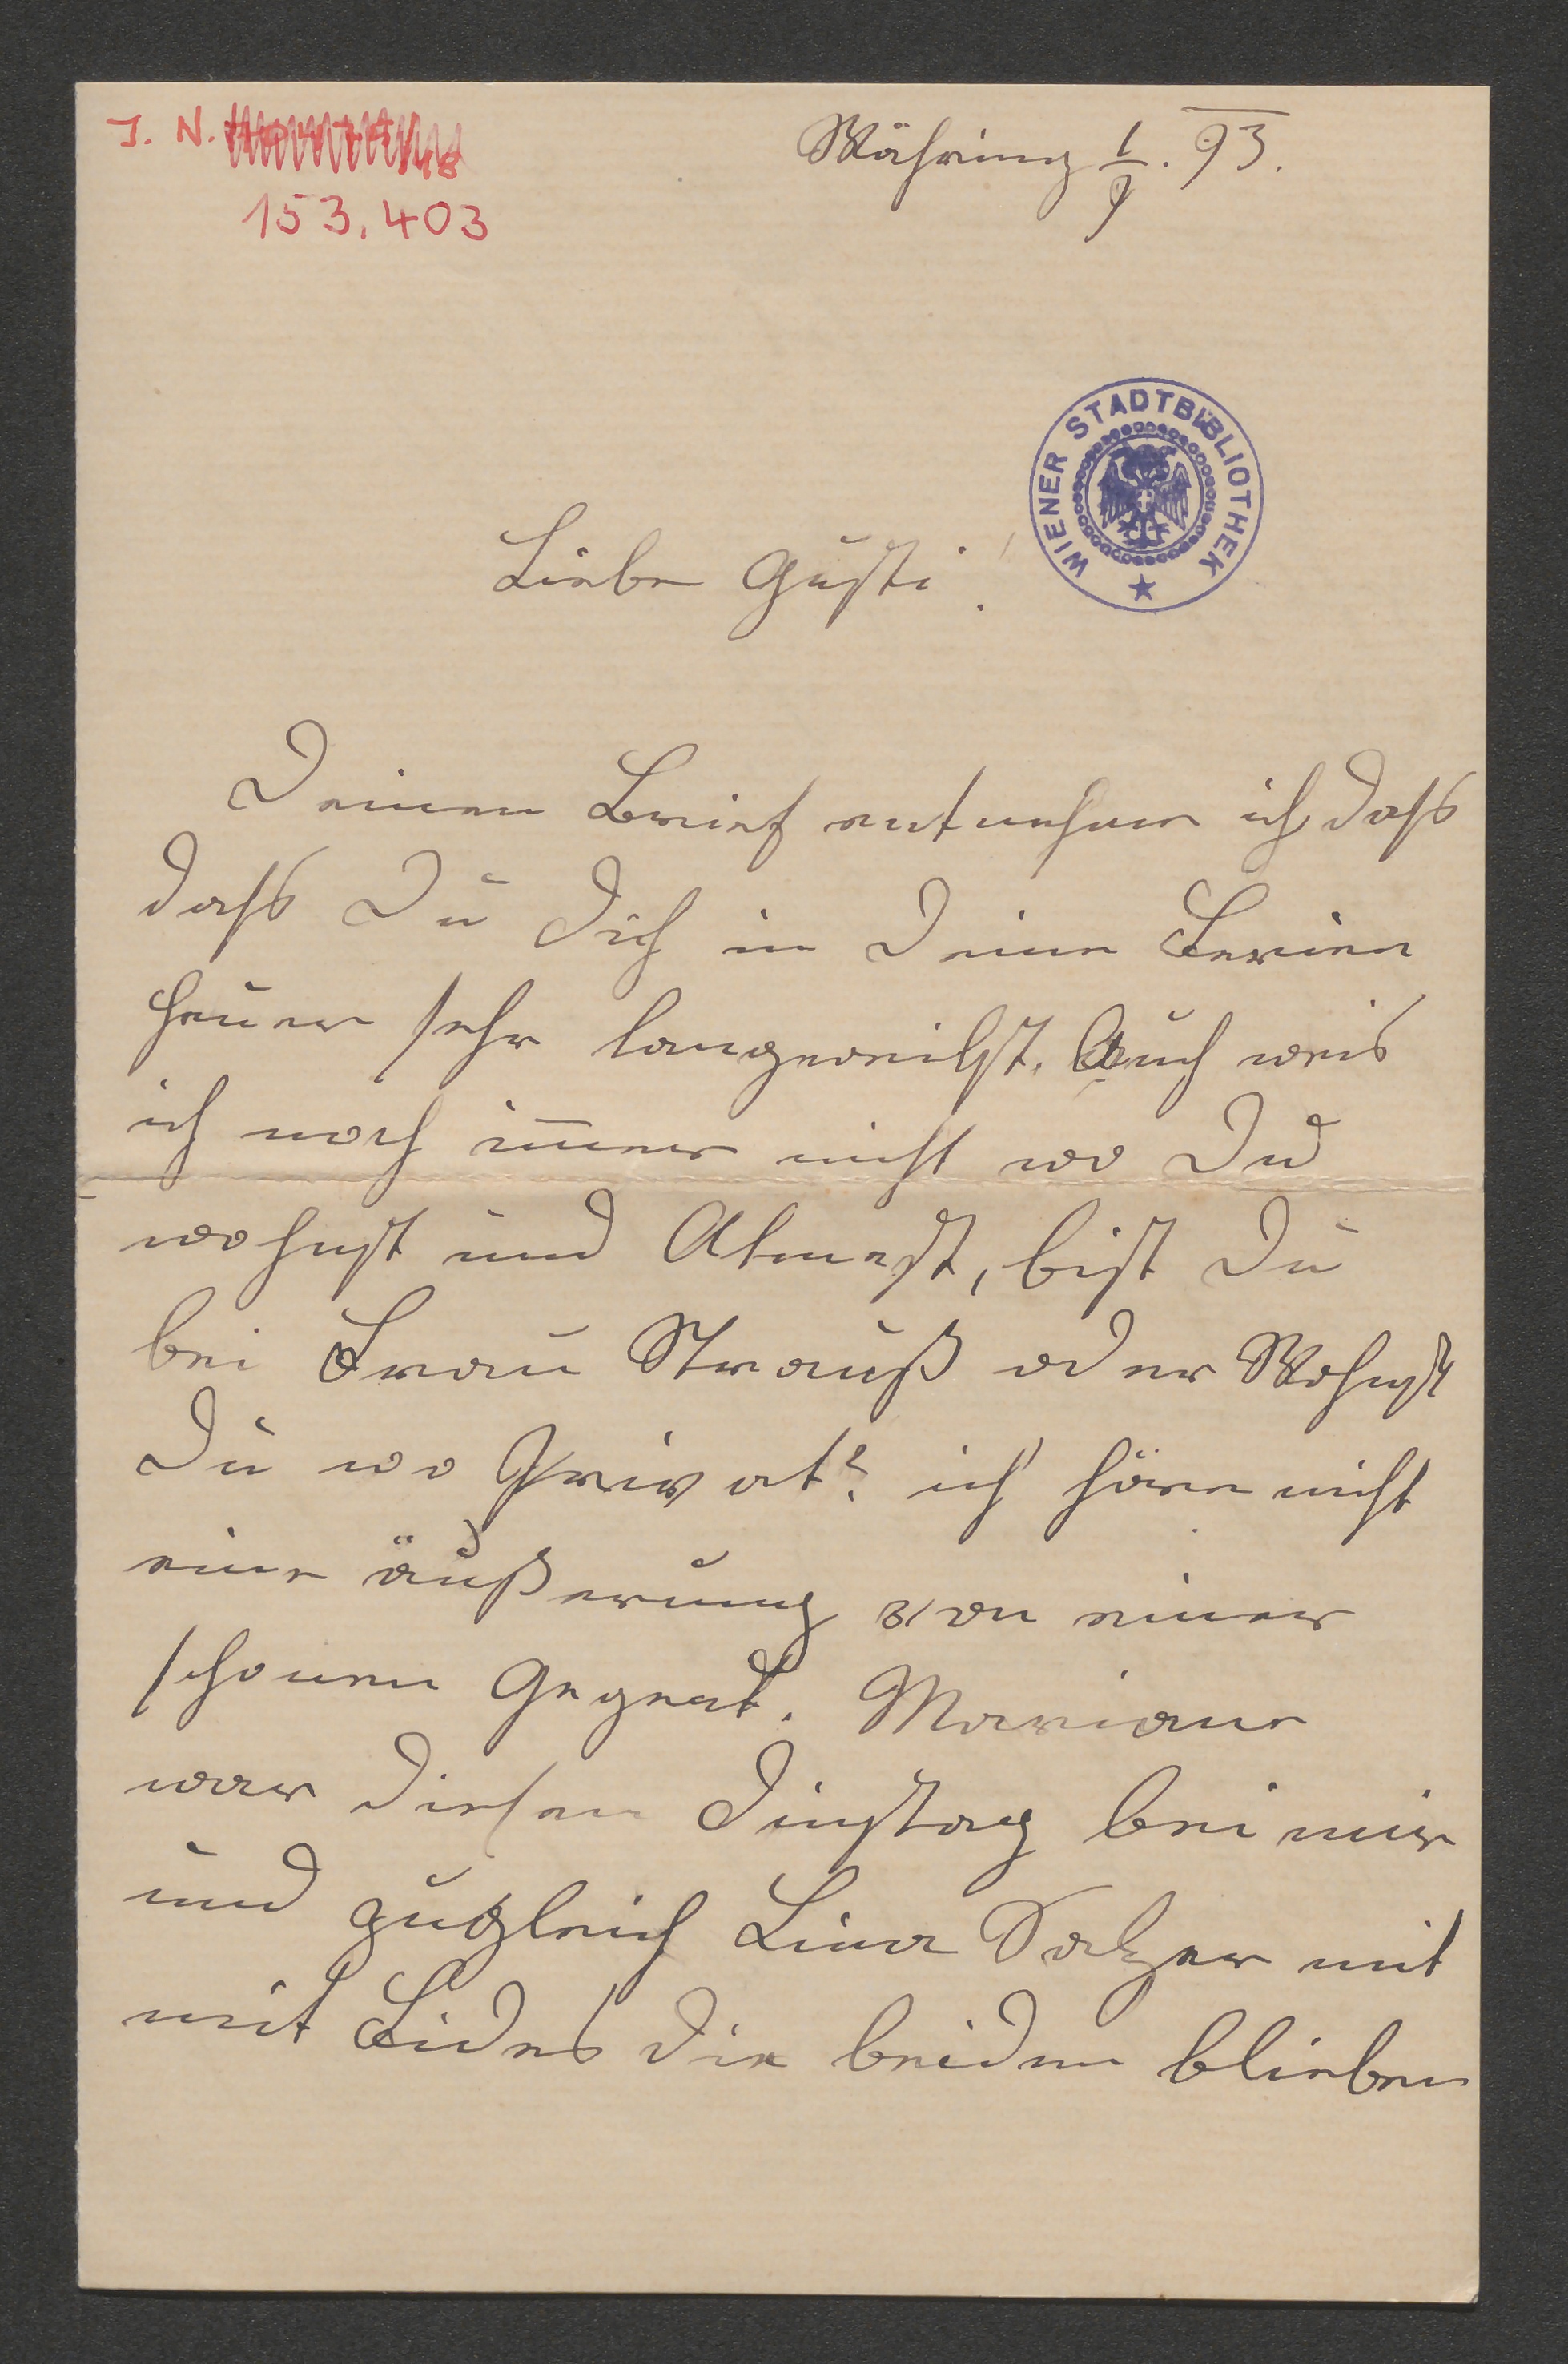 J. N.
153.403
Währing 1/9. 93.
WIENER STADTBIBLIOTHEK
Liebe Gusti!
Deinen Brief entnehme ich dass
dass Du Dich in Deine Ferien
heuer sehr langweilst. Auch weis
ich noch im̅er nicht wo Du
wohnst und Atmest, bist Du
bei Frau Strauß oder Wohnst
Du wo Privat? ich höre nicht
eine äußerung von einer
schonen Gegend. Mariane
war diesen Dinstag bei mir
und zugleich Lina Salzer mit
mit Fides die beiden blieben